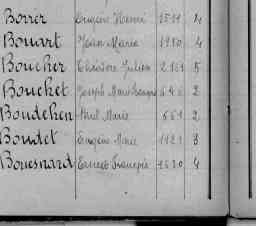 Borrer Eugène Henri 1511 4
Bouart Jean Marie 1910 4
Boucher Théodore Julien 2121 5
Bouchet Joseph Marie 646 2
Boudehen Paul Marie 661 2
Boudet Eugène Marie 1121 3
Bouesnard Ernest François 1620 4